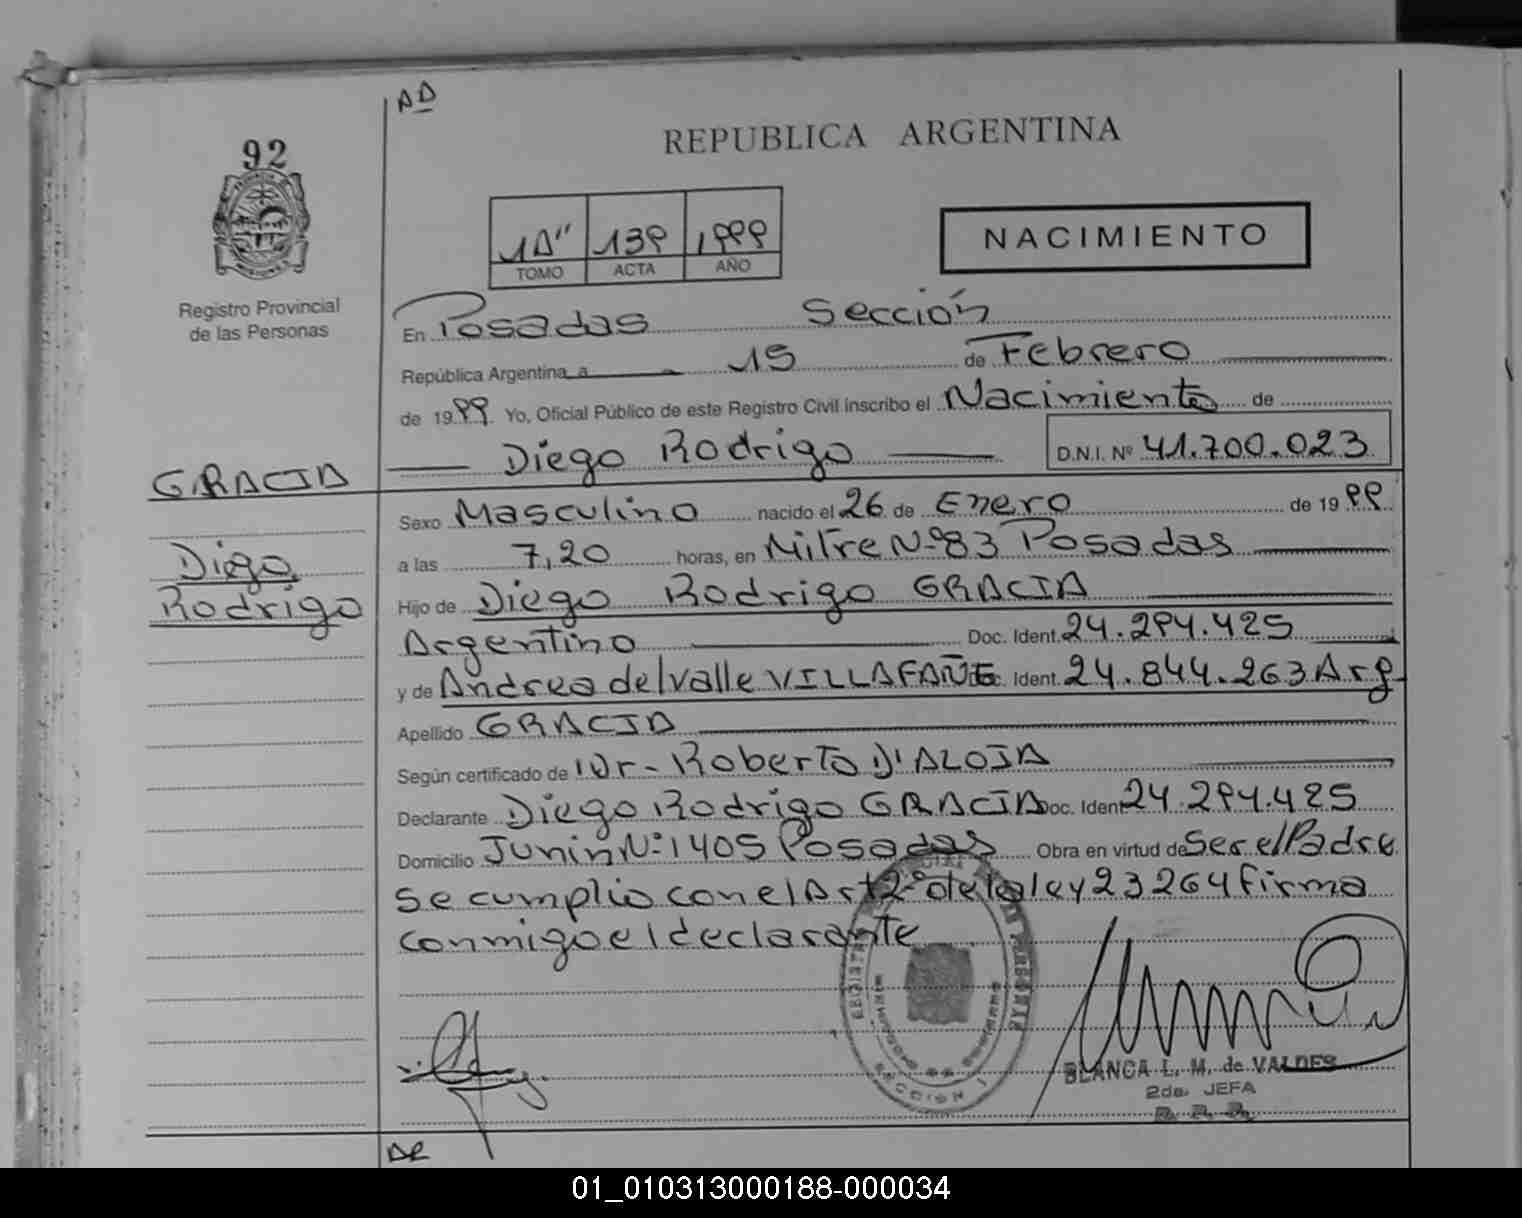 AD
92
REPUBLICA ARGENTINA
1A" 139 1999
TOMO ACTA AÑO
NACIMIENTO
Registro Provincial
de las Personas
En Posadas Sección
República Argentina a 15 de Febrero
de 1999 Yo, Oficial Público de este Registro Civil inscribo el Nacimiento de
Diego Rodrigo D.N.I. Nº 41.700.023
GRACIA
Sexo Masculino nacido el 26 de Enero de 1999
Diego
Rodrigo
a las 7,20 horas, en Mitre Nº 83 Posadas
Hijo de Diego Rodrigo GRACIA
Argentino Doc. Ident. 24.294.425
y de Andrea del Valle VILLAFAÑE Doc. Ident. 24.844.263 Arg
Apellido GRACIA
Según certificado de Dr- Roberto D'ALOIA
Declarante Diego Rodrigo GRACIA Doc. Ident. 24.294.425
Domicilio Junin Nº 1405 Posadas Obra en virtud de Ser el Padre
Se cumplio con el Art 2º de la ley 23264 firma
conmigo el declarante
SECCION 1
BLANCA L. M. de VALDES
2da. JEFA
AR
01_010313000188-000034